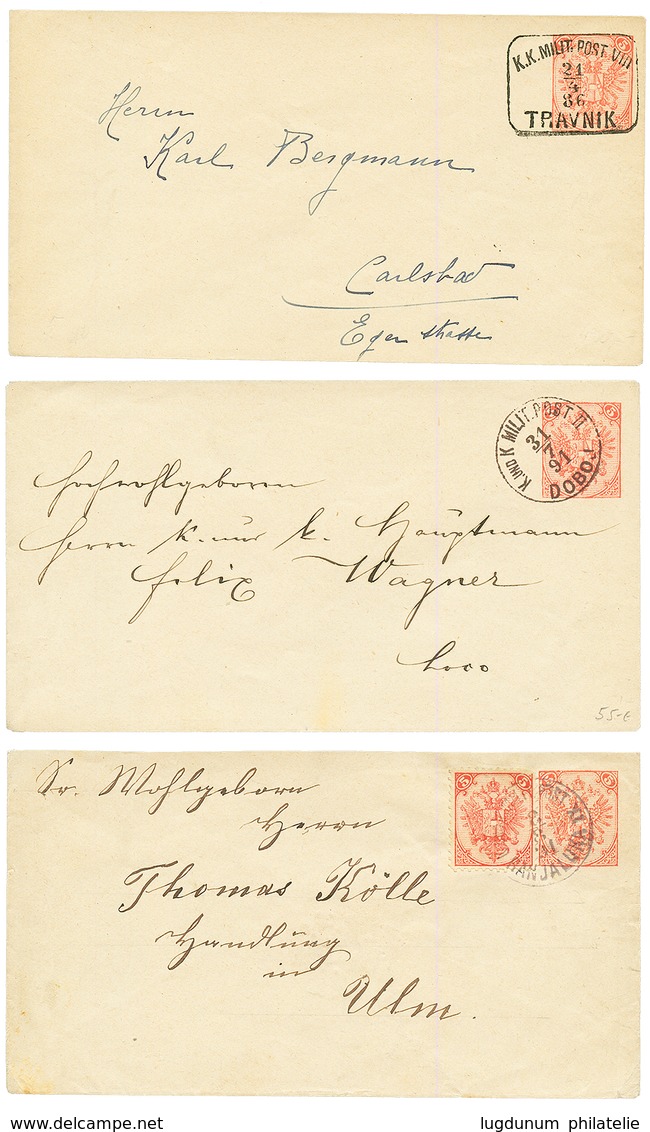 K.K. MILIT. POST. VIII
21
4
86
TRAVNIK
5
Herrn
Karl Bergmann
Carlsbad
Egerstrasse
K. UND K. MILIT. POST. II
31
7
91
DOBOJ
5 5
Hochwohlgeboren
Herrn K. und k. Hauptmann
Felix Wagner
Loco
55-€
5 5 5 5
BANJALUKA
Sr. Wohlgeborn
Herrn
Thomas Kölle
Handlung
in
Ulm.
www.delcampe.net
lugdunum philatelie